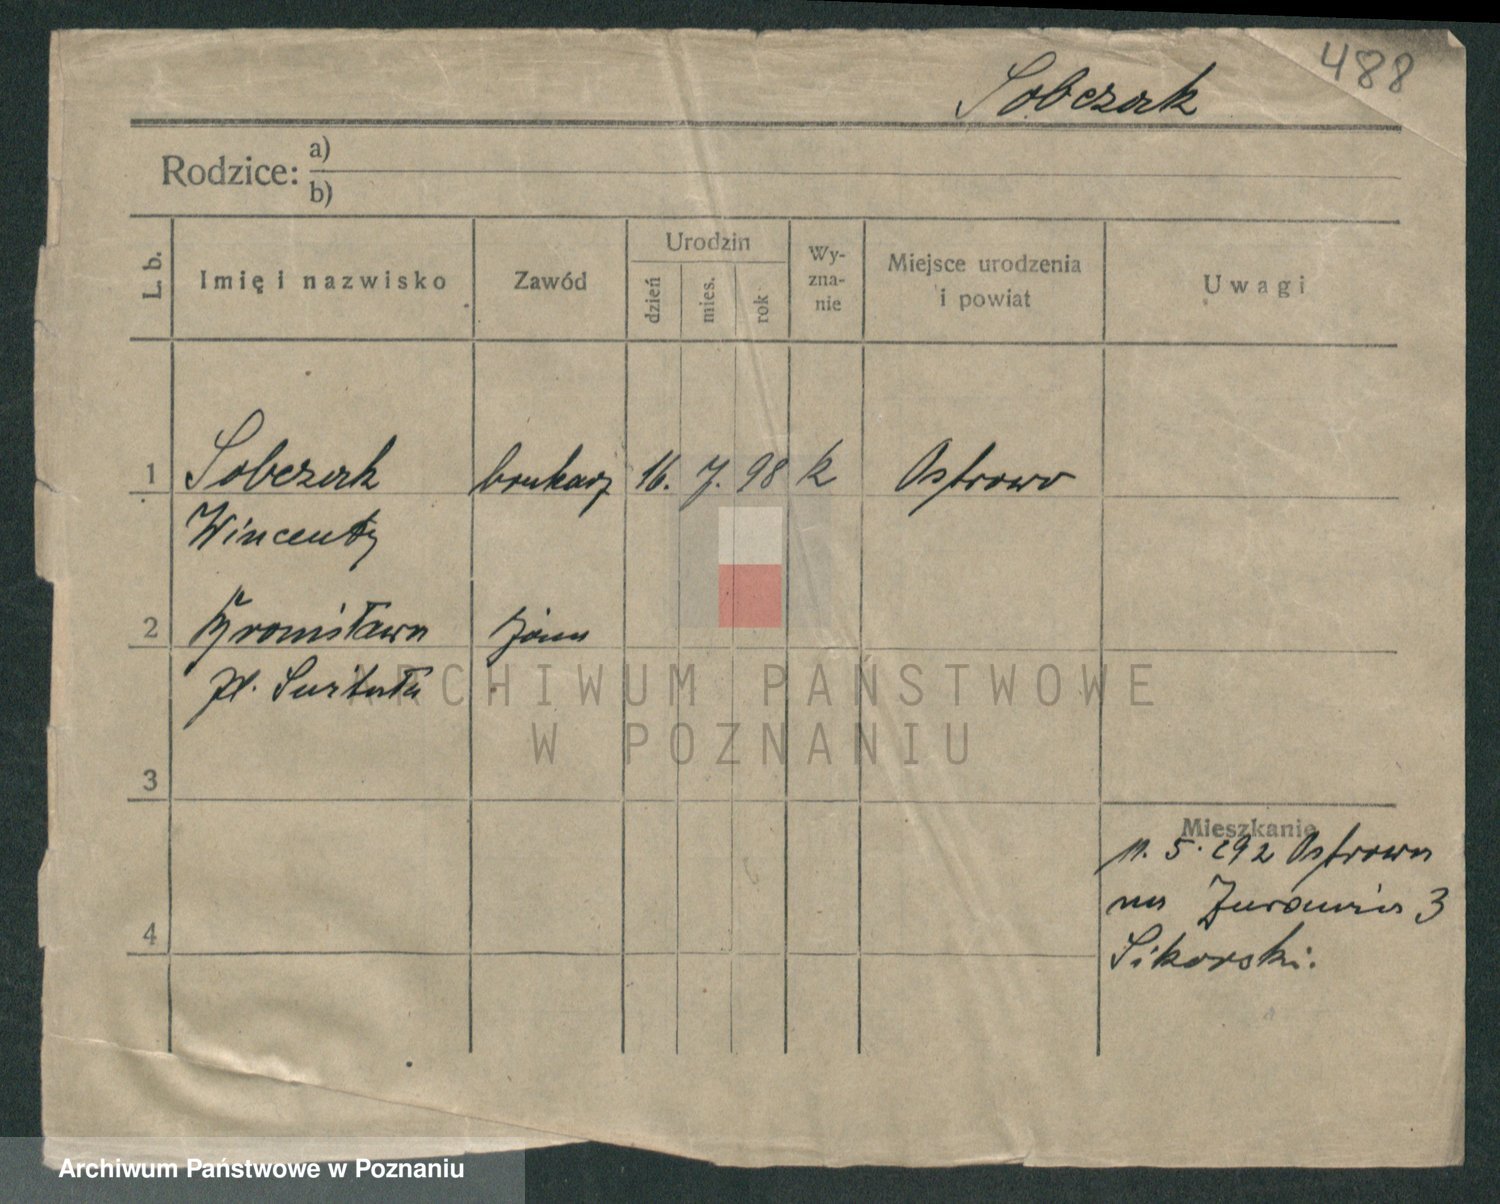 488
Sobczak
Rodzice: a)
b)
L. b.
Imię i nazwisko
Zawód
Urodzin
dzień
mies.
rok
Wy-
zna-
nie
Miejsce urodzenia
i powiat
Uwagi
1 Sobczak brukarz 16. 7. 98 k Ostrowo
Wincenty
2 Bronisława żona
3
Mieszkanie
5. 192 Ostrowo
na 3
4
Sikorski.
ARCHIWUM PAŃSTWOWE
W POZNANIU
Archiwum Państwowe w Poznaniu